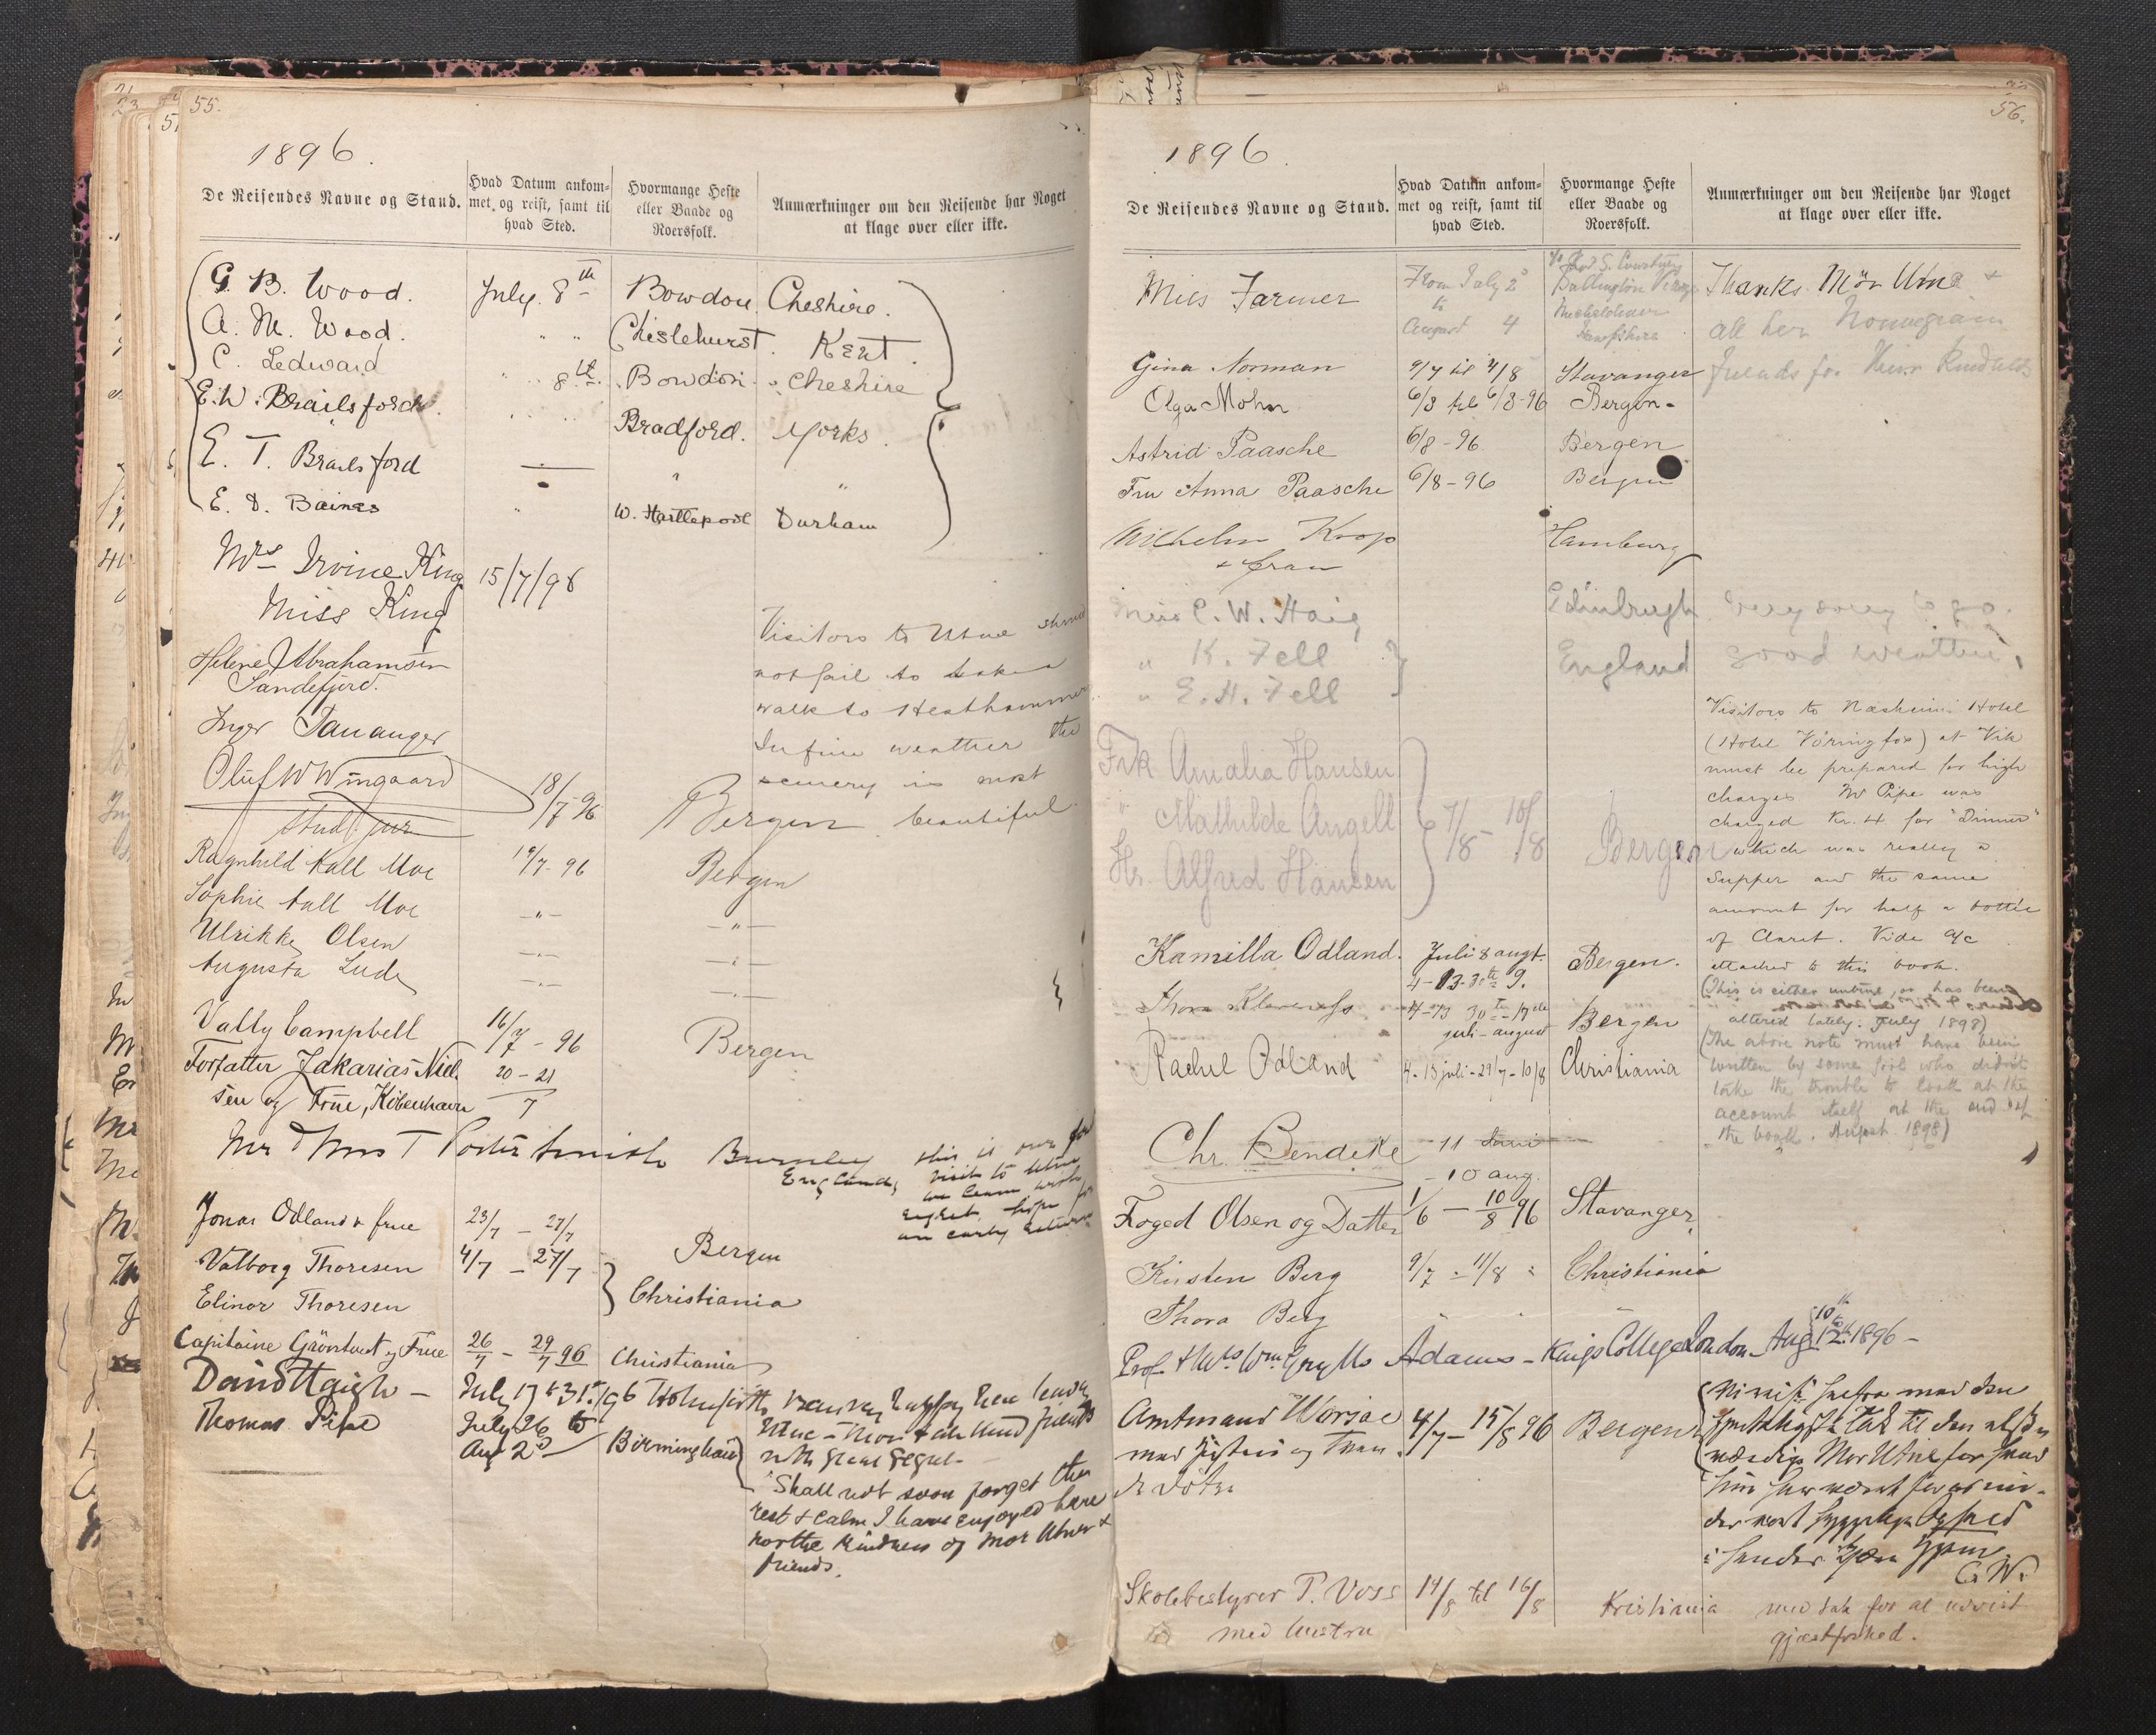 55.
1896.
De Reisendes Navne og Stand.
Hvad Datum ankom-
met og reist, samt til
hvad Sted.
Hvormange Heste
eller Baade og
Roersfolk.
Anmærkninger om den Reisende har Noget
at klage over eller ikke.
G. B. Wood. July. 8th Bowdon Cheshire.
A. M. Wood. " " Chislehurst. Kent.
C. Ledward " 8th. Bowdon. Cheshire
E. W. Brailsford.
Bradford. Yorks.
E. T. Brailsford " "
E. D. Baines " W. Hartlepool Durham
Mrs Irvine King 15/7/96
Miss King
Visitors to Utne should
not fail to take a
walk to
In fine weather the
scenery is most
beautiful.
Helene Abrahamsen
Sandefjord.
Inger Tananger
Oluf W Wingaard 18/7-96 Bergen
stud. jur
Ragnhild Kall Moe 19/7-96 Bergen
Sophie Kall Moe -"- -"-
Ulrikke Olsen
Augusta Lude
Vally Campbell 16/7-96 Bergen
Forfatter Zakarias Niel- 20-21
sen og Frue, København 7
Mr & Mrs T Porter Smith Burnley
England,
this is our
visit to Utne
we leave with
regret, hope for
an early return
Jonas Odland & frue 23/7 - 27/7 Bergen
Valborg Thoresen 4/7 - 27/7
Elinor Thoresen Christiania
Capitaine Grönstuet og Frue 26/7 - 29/7 96 Christiania
David Haigh - July 17 to 31st/96 Holmfirth very happy here leaving
Utne - Mor & all kind friends
with great regret -
Thomas Pipe July 26 to
Aug 2d Birmingham
"Shall not soon forget the
rest & calm I have enjoyed here
nor the kindness of Mor Utne &
friends.
56.
1896.
De Reisendes Navne og Stand.
Hvad Datum ankom-
met og reist, samt til
hvad Sted.
Hvormange Heste
eller Baade og
Roersfolk.
Anmærkninger om den Reisende har Noget
at klage over eller ikke.
Miss Farmer From July 2d
to
August 4
Micheldever
Hampshire
Thanks Mör Utne &
all her Norwegian
friends for their kindness
Gina Norman 9/7 til 4/8 Stavanger
Olga Mohn 6/8 til 6/8-96 Bergen-
Astrid Paasche 6/8-96 Bergen
Fru Anna Paasche 6/8-96 Bergen
Wilhelm Koop Hamburg
& Frau
Miss C. W. Haig Edinburgh Very sorry to go.
" K. Fell England good weather.
" E. H. Fell
Frk Amalia Hansen
" Mathilde Angell 7/8 - 10/8 Bergen
Hr. Alfred Hansen
Visitors to Næsheim Hotel
(Hotel Vöringfos) at Vik
must be prepared for high
charges Mr Pipe was
charged Kr. 4 for "Dinner"
which was really a
Supper and the same
amount for half a bottle
of Claret. Vide a/c
attached to this book.
(This is either untrue, or has been
altered lately. July 1898)
(The above note must have been
written by some fool who didn't
take the trouble to look at the
account itself at the end of
the book. August 1898)
Kamilla Odland. Juli 8 augt. Bergen.
4-13-30te 9.
Thora Klaveness 4-13 30te-17de Bergen
juli-august
Rachel Odland 4-13 juli-29/7-10/8 Christiania
Chr. Bendeke - 11 Juni
- 10 aug.
Foged Olsen og Datter 1/6 - 10/8 96 Stavanger
Kirsten Berg 9/7 - 11/8 Christiania
Thora Berg
Prof. & Mrs Wm Grylls Adams - Kings College London Aug. 10th to 12th 1896 -
Amtmand Worsøe 4/7-15/8 96 Bergen
med
de døtre
C. W.
Skolebestyrer P. Voss 14/8 til 16/8 Kristiania med tak for al udvist
med hustru gjæstfrihed.